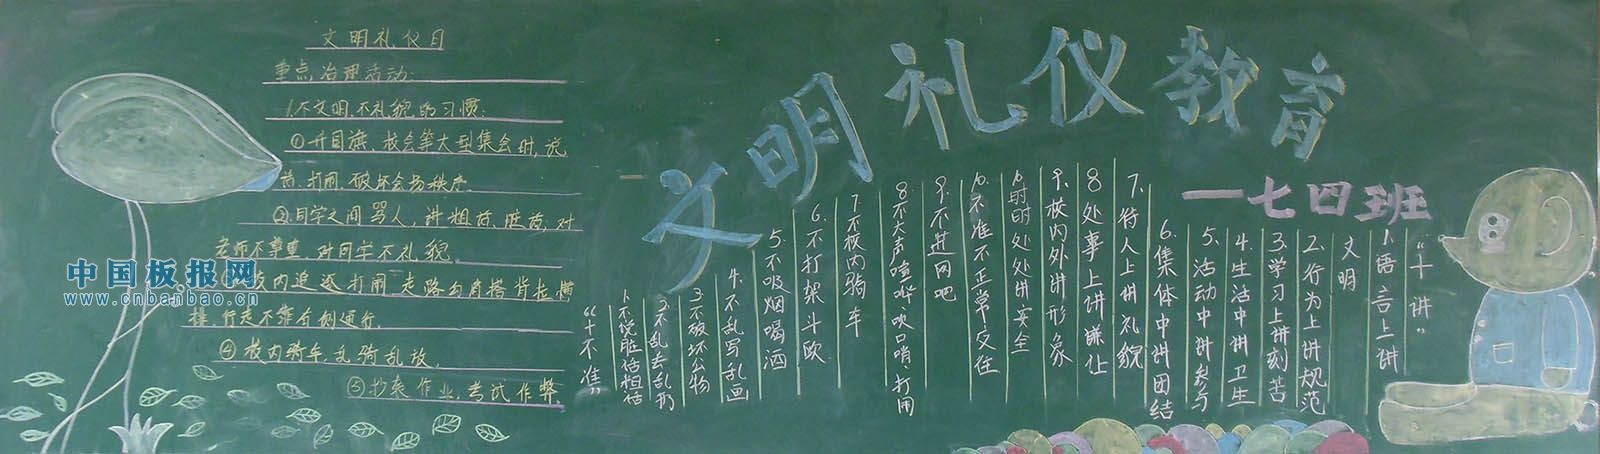 文明礼仪教育
一七四班
文明礼仪月
重点治理活动:
1.不文明、不礼貌的习惯.
①升国旗、校会等大型集会时,说
话、打闹、破坏会场秩序.
②同学之间骂人,讲粗话、脏话,对
老师不尊重,对同学不礼貌.
校内追逐打闹,走路勾肩搭背拉横
排,行走不靠右侧通行.
④校内骑车,乱骑乱放.
⑤抄袭作业,考试作弊.
中国板报网
www.cnbanbao.cn
“十讲”
1.语言上讲
文明
2.行为上讲规范
3.学习上讲刻苦
4.生活中讲卫生
5.活动中讲参与
6.集体中讲团结
7.待人上讲礼貌
8处事上讲谦让
9.校内外讲形象
10时时处处讲安全
10.不准不正常交往
9.不进网吧
8不大声喧哗、吹口哨、打闹
7.不校内骑车
6.不打架斗殴
5.不吸烟喝酒
4.不乱写乱画
3不破坏公物
2.不乱丢乱扔
1.不说脏话粗话
“十不准”